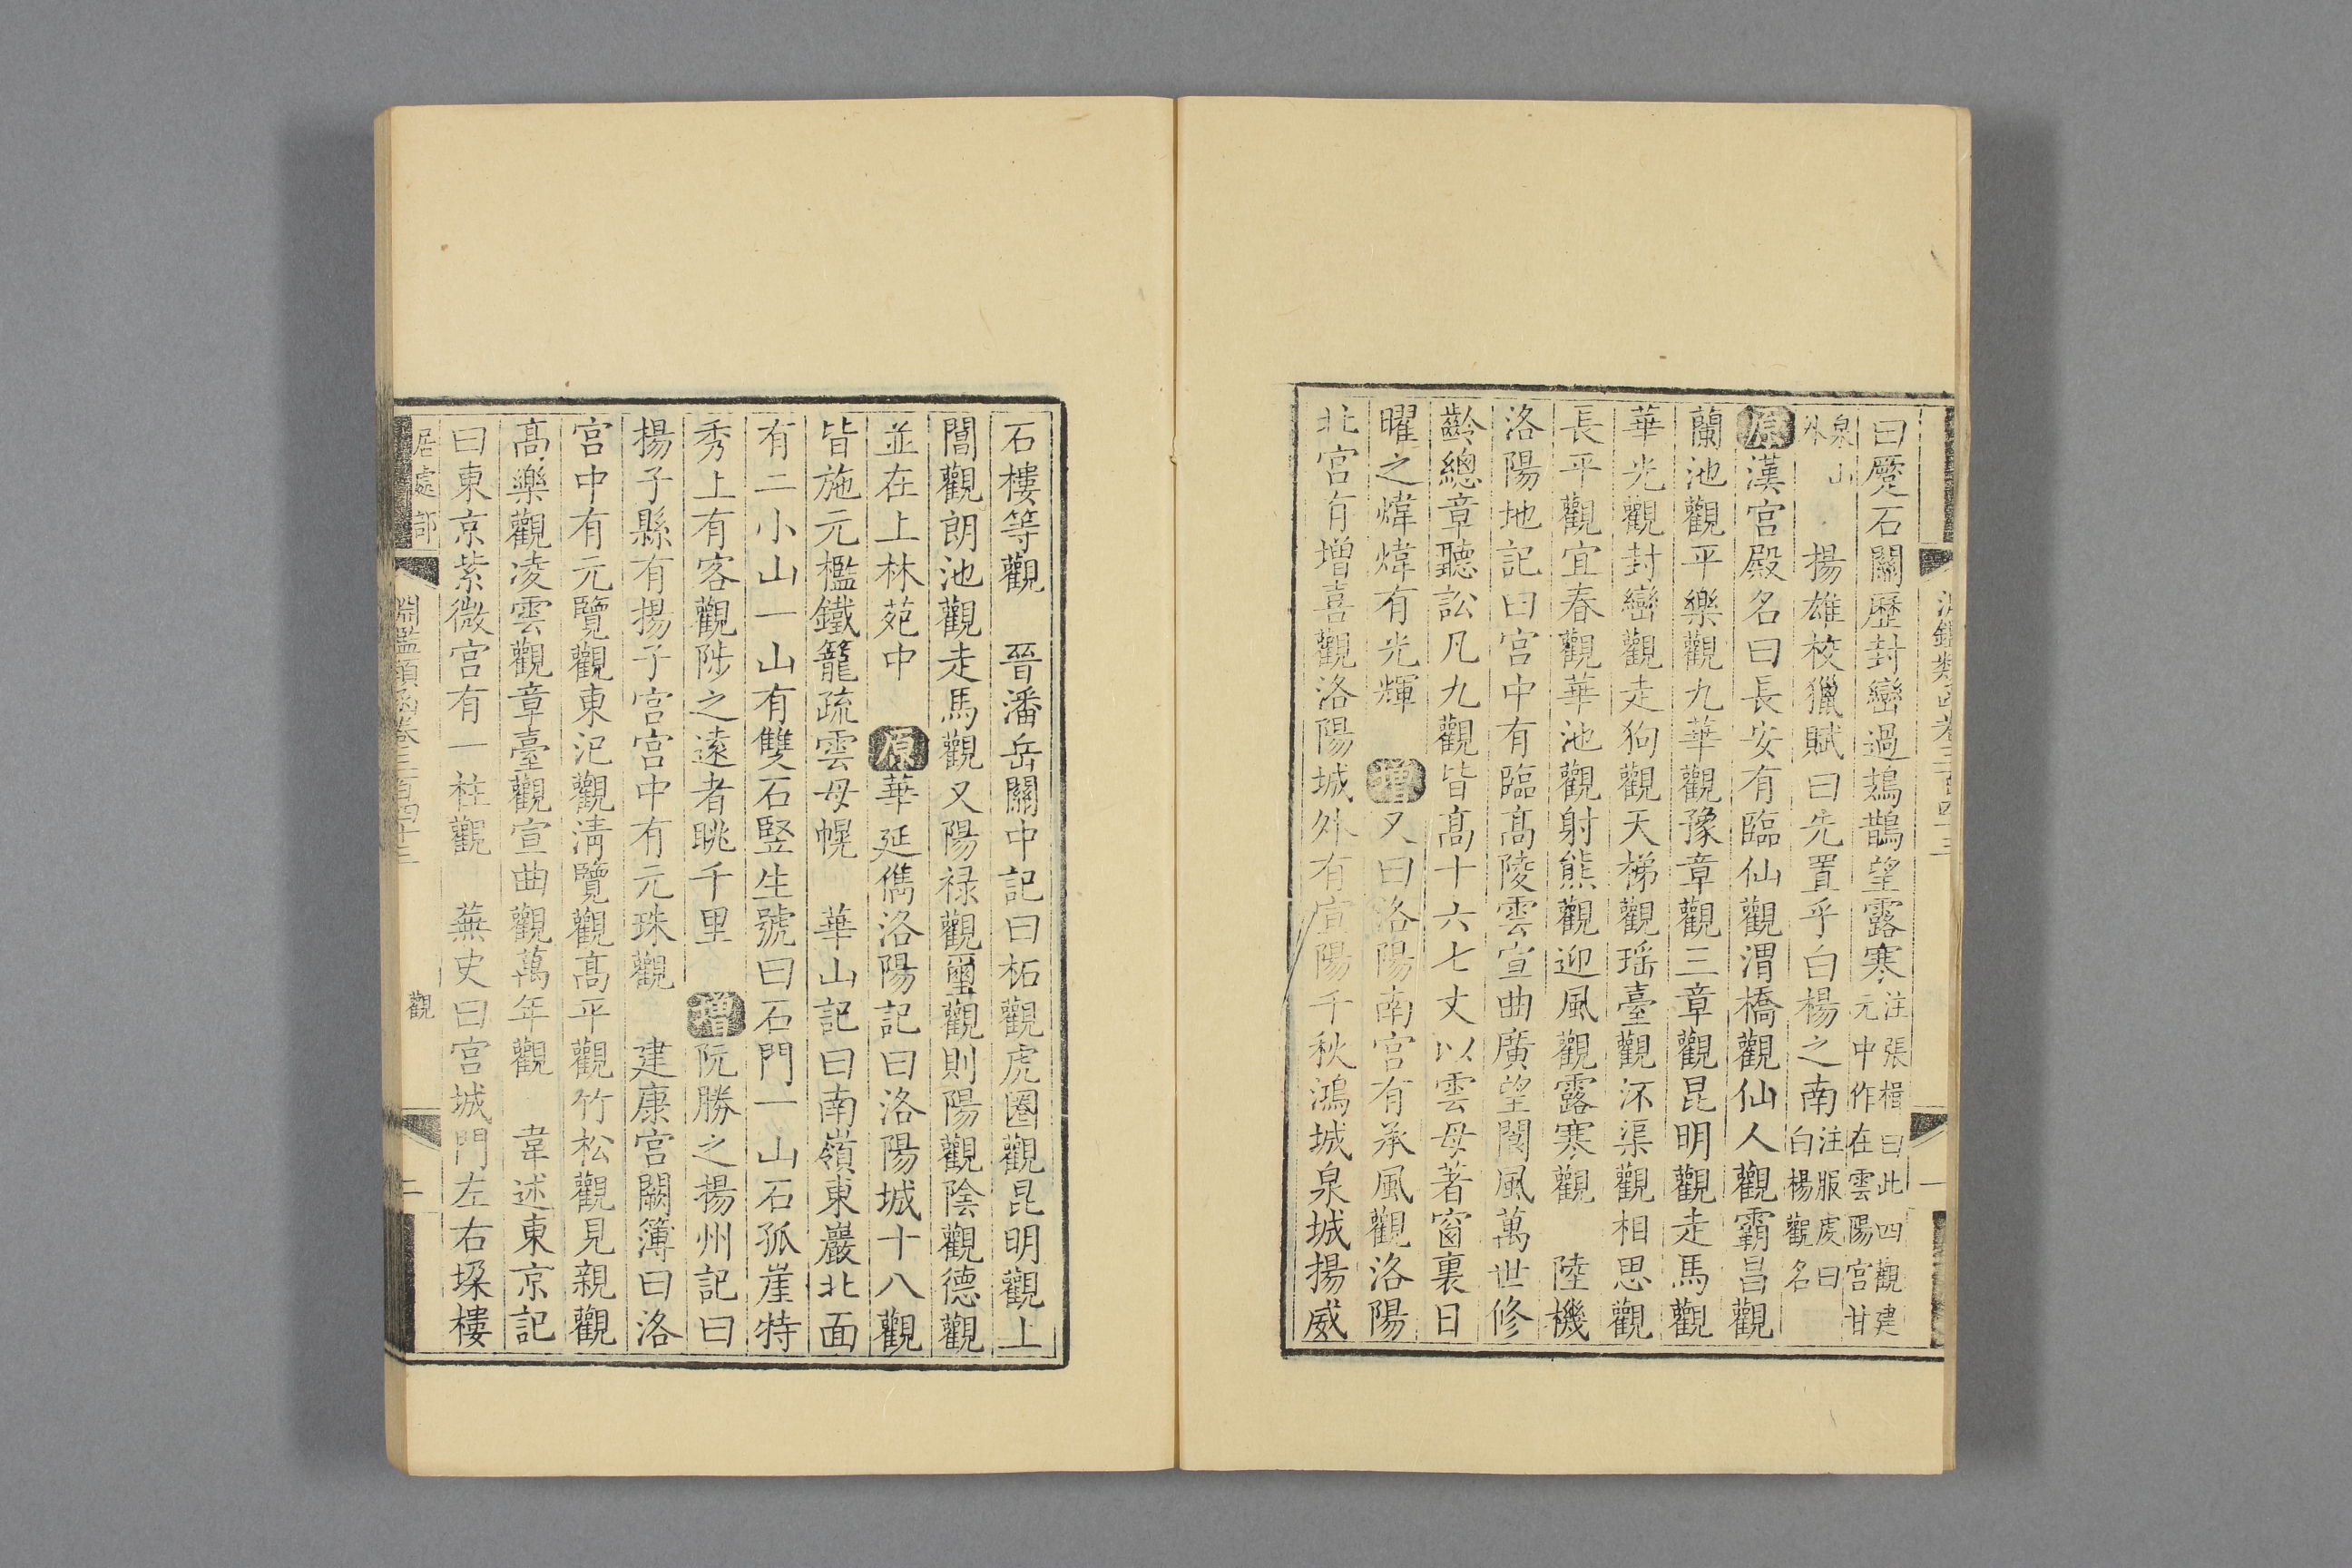 曰蹷石關歷封巒過鳷鵲望露寒注張楫曰此四觀建元中作在雲陽宮甘
泉山外　揚雄校獵賦曰先置乎白楊之南注服虔曰白楊觀名
原漢宮殿名曰長安有臨仙觀渭橋觀仙人觀霸昌觀
蘭池觀平樂觀九華觀豫章觀三章觀昆明觀走馬觀
華光觀封巒觀走狗觀天梯觀瑤臺觀㳅渠觀相思觀
長平觀宜春觀華池觀射熊觀迎風觀露寒觀　陸機
洛陽地記曰宮中有臨高陵雲宣曲廣望閬風萬世修
齡總章聽訟凡九觀皆高十六七丈以雲母著窗裏日
曜之煒煒有光輝　增又曰洛陽南宮有承風觀洛陽
北宮有增喜觀洛陽城外有宣陽千秋鴻城泉城揚威
石樓等觀　晉潘岳關中記曰柘觀虎圈觀昆明觀上
閶觀朗池觀走馬觀又陽祿觀璽觀則陽觀陰觀德觀
並在上林苑中　原華延儁洛陽記曰洛陽城十八觀
皆施元檻鐵籠疏雲母幌　華山記曰南嶺東巖北面
有二小山一山有雙石竪生號曰石門一山石孤崖特
秀上有客觀陟之遠者眺千里　增阮勝之揚州記曰
揚子縣有揚子宮宮中有元珠觀　建康宮闕簿曰洛
宮中有元覽觀東汜觀清覽觀高平觀竹松觀見親觀
高樂觀凌雲觀章臺觀宣曲觀萬年觀　韋述東京記
曰東京紫微宮有一柱觀　蕪史曰宮城門左右垜樓
居處部　淵鑑類函卷三百四十三　觀　二